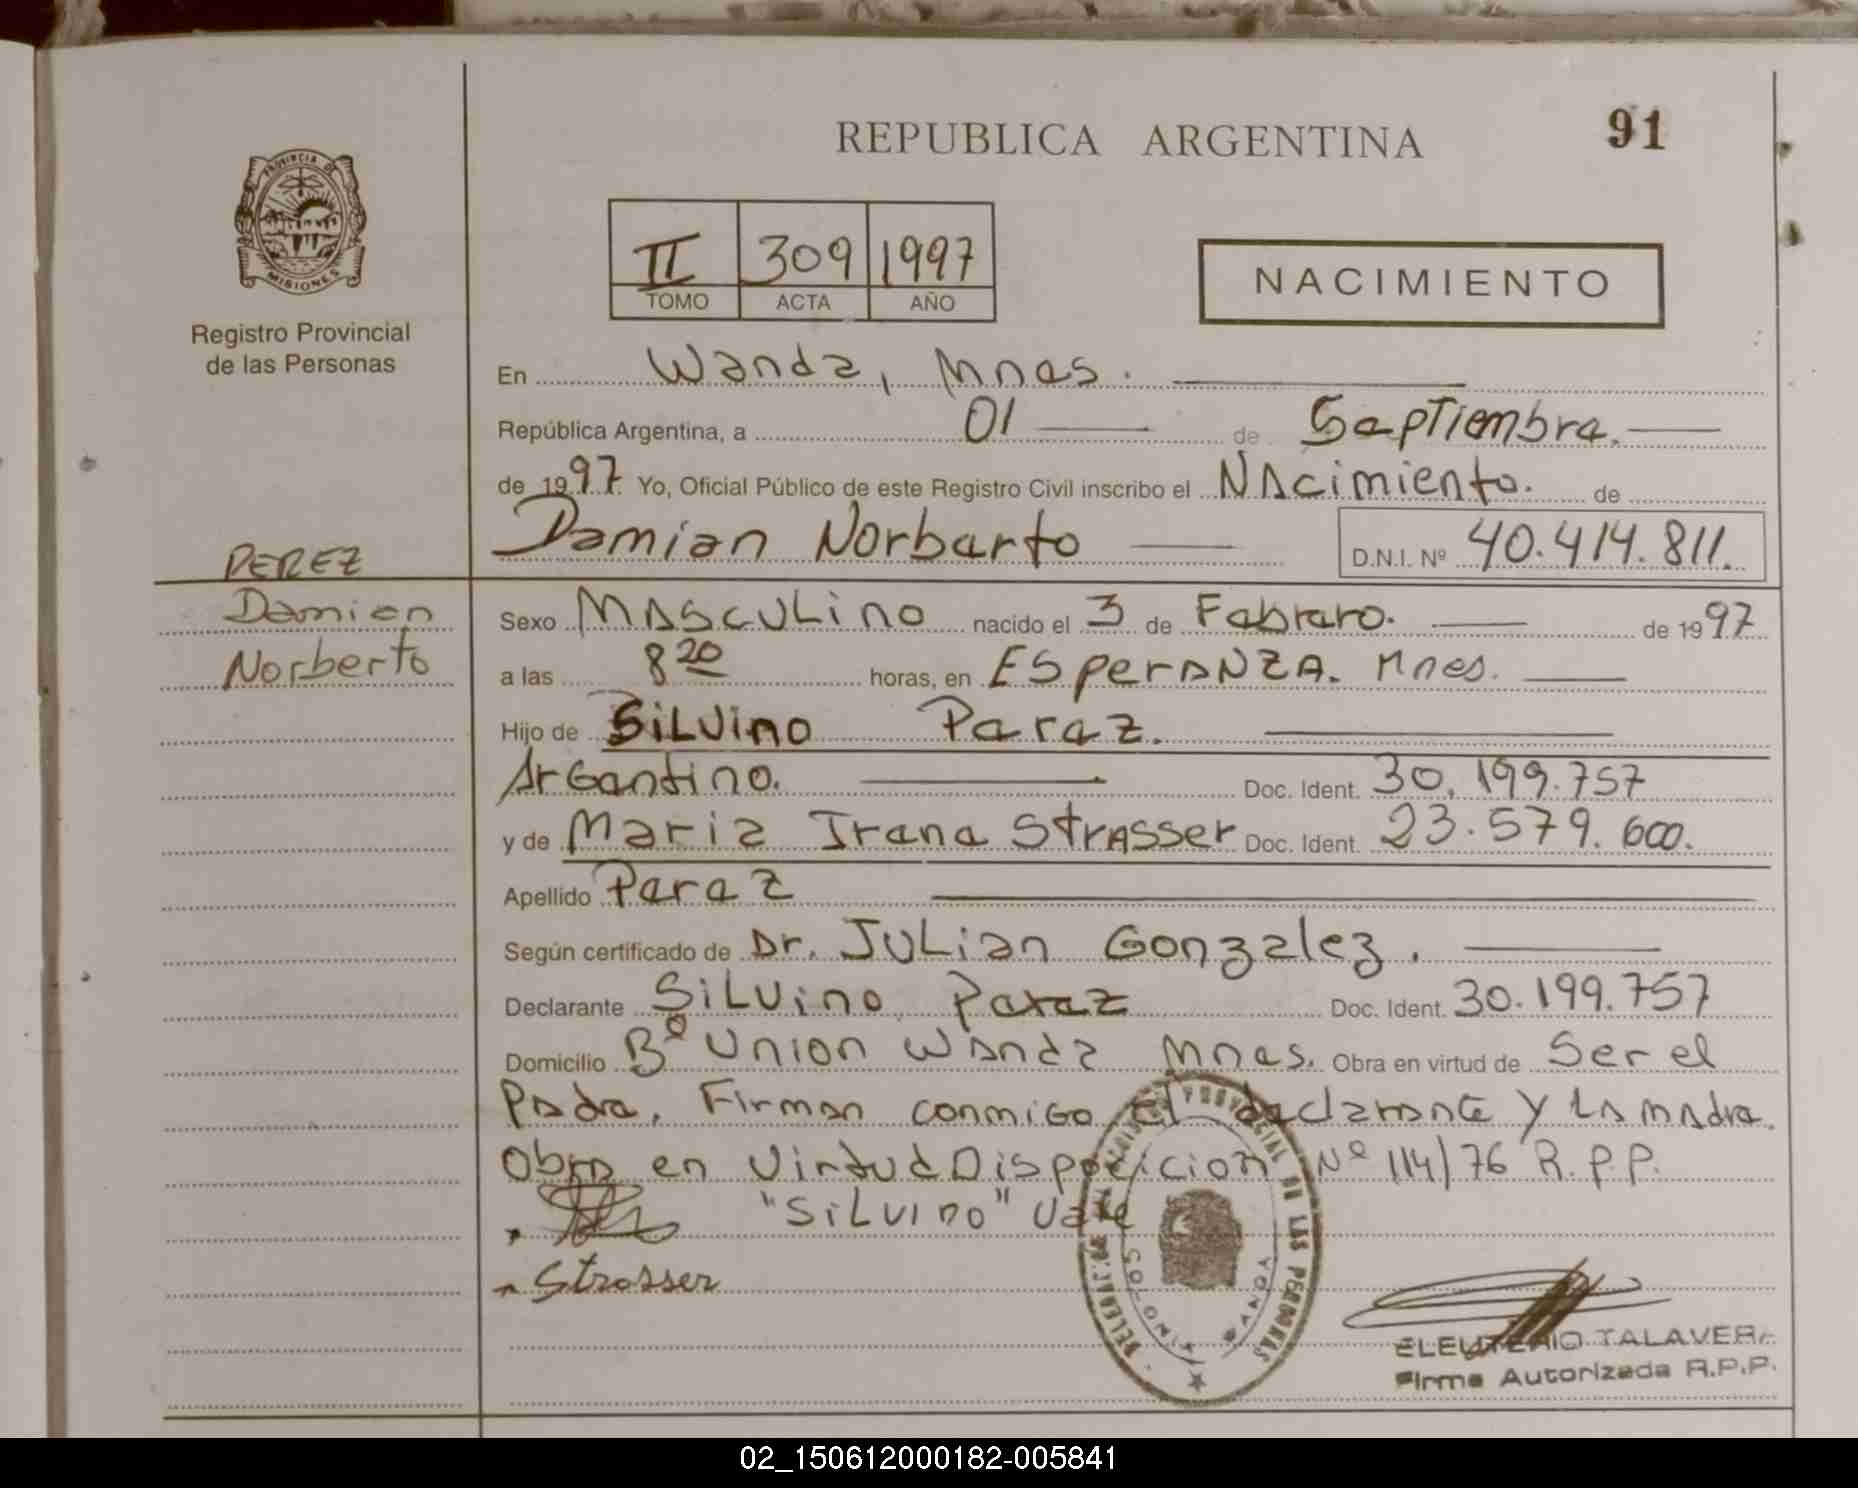 REPUBLICA ARGENTINA
91
PROVINCIA DE
MISIONES
Registro Provincial
de las Personas
II 309 1997
TOMO ACTA AÑO
NACIMIENTO
En Wanda, Mnes.
República Argentina, a 01 de Septiembre.
de 1997. Yo, Oficial Público de este Registro Civil inscribo el Nacimiento. de
Damian Norberto D.N.I. Nº 40.414.811.
PEREZ
Damian
Norberto
Sexo Masculino nacido el 3 de Febrero. de 1997
a las 8 20 horas, en Esperanza. Mnes.
Hijo de Silvino Perez.
Argentino. Doc. Ident. 30.199.757
y de Maria Irene Strasser Doc. Ident. 23.579.600.
Apellido Perez
Según certificado de Dr. Julian Gonzalez.
Declarante Silvino Perez Doc. Ident. 30.199.757
Domicilio Bº Union Wanda Mnes. Obra en virtud de Ser el
Padre. Firman conmigo el declarante y la madre.
Obra en Virtud Disposicion Nº 114/76 R.P.P.
"Silvino" Vale
Strasser
PROVINCIAL DE LAS PERSONAS
WANDA
ELEUTERIO TALAVERA
Firma Autorizada R.P.P.
02_150612000182-005841